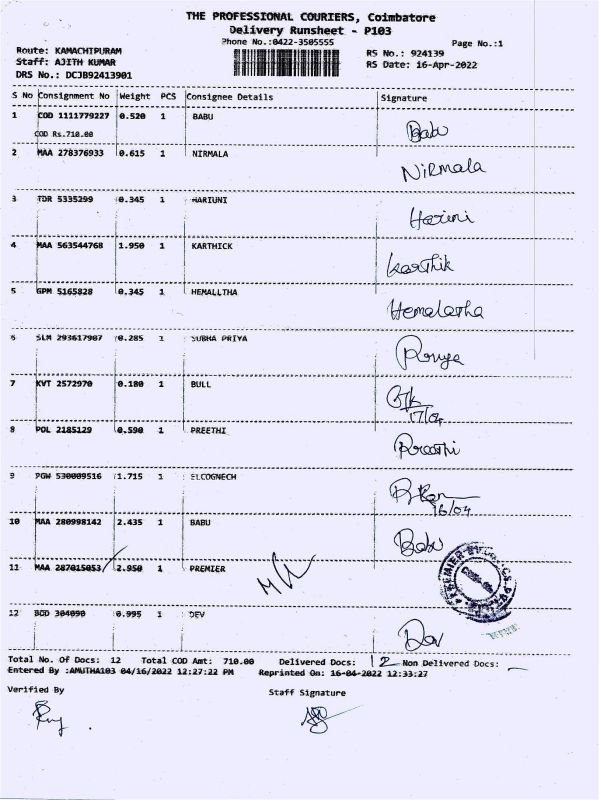 THE PROFESSIONAL COURIERS, Coimbatore
Delivery Runsheet - P103
Phone No.:0422-3505555
Page No.:1
Route: KAMACHIPURAM
RS No.: 924139
Staff: AJITH KUMAR
RS Date: 16-Apr-2022
DRS No.: DCJB92413901
S No Consignment No Weight PCS Consignee Details Signature
1 COD 1111779227 0.520 1 BABU
COD Rs.710.00
Babu
2 MAA 278376933 0.615 1 NIRMALA
Nirmala
3 TDR 5335299 0.345 1 HARIUNI
Harini
4 MAA 563544768 1.950 1 KARTHICK
Karthik
5 GPM 5165828 0.345 1 HEMALLTHA
Hemalatha
6 SLM 293617907 0.285 1 SUBHA PRIYA
Priya
7 KVT 2572970 0.180 1 BULL
17/04
8 POL 2185129 0.590 1 PREETHI
Preethi
9 PGW 530009516 1.715 1 ELCOGNECH
16/04
10 MAA 280998142 2.435 1 BABU
Babu
11 MAA 287015053 2.950 1 PREMIER
12 BOD 304090 0.995 1 DEV
Dev
Total No. Of Docs: 12 Total COD Amt: 710.00 Delivered Docs: 12 Non Delivered Docs: -
Entered By :AMUTHA103 04/16/2022 12:27:22 PM Reprinted On: 16-04-2022 12:33:27
Verified By Staff Signature